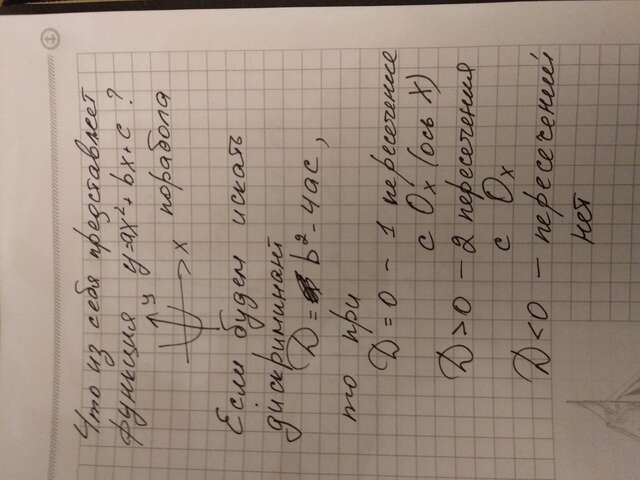 Что из себя представляет
функция y=ax²+bx+c ?
y
x
порабола
Если будем искать
дискриминант
D = b²-4ac,
то при
D=0 - 1 пересечение
с Ox (ось X)
D>0 - 2 пересечения
с Ox
D<0 - пересечений
нет